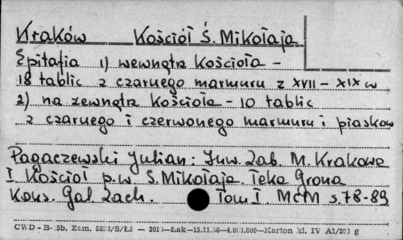 Kraków Kościół Ś. Mikołaja
Epitafia 1) wewnątrz Kościoła -
18 tablic z czarnego marmuru z XVII - XIX w
2) na zewnątrz Kościoła - 10 tablic
z czarnego i czerwonego marmuru i piaskow
Pagaczewski Julian: Inw. Zab. M. Krakowa
I Kościół p.w. S. Mikołaja. Teka Grona
Kons. Gal. Zach. Tom I. MCM s. 78-89
CWD - B- 5b. Zam.